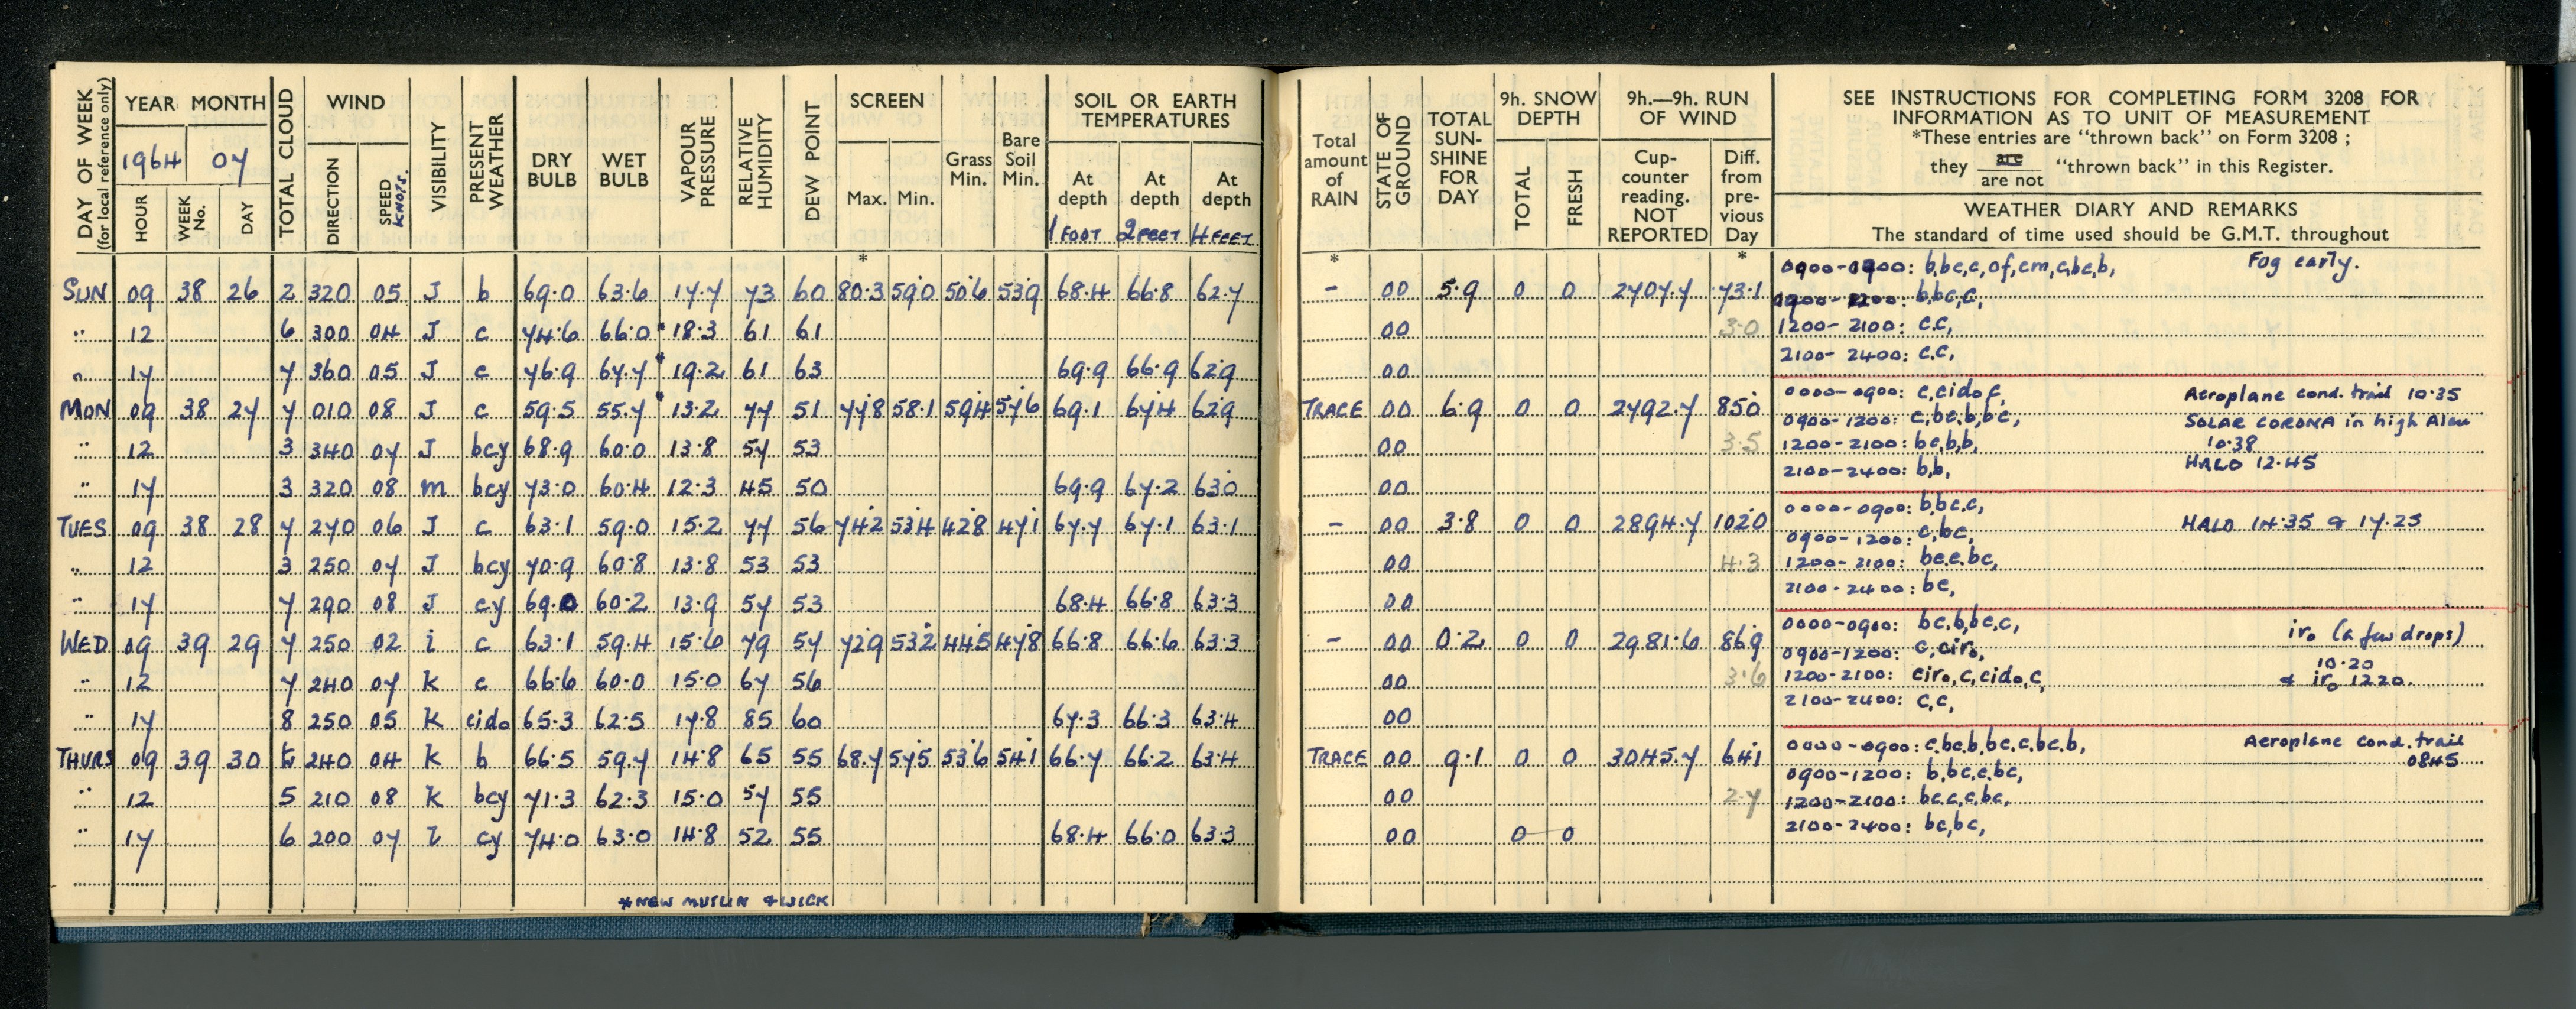 DAY OF WEEK (for local reference only)
YEAR MONTH
1964 07
HOUR WEEK No. DAY
TOTAL CLOUD
WIND
DIRECTION SPEED KNOTS.
VISIBILITY
PRESENT WEATHER
DRY BULB
WET BULB
VAPOUR PRESSURE
RELATIVE HUMIDITY
DEW POINT
SCREEN
Max. Min.
Grass Min.
Bare Soil Min.
SOIL OR EARTH TEMPERATURES
At depth At depth At depth
1 FOOT 2 FEET 4 FEET
* Total amount of RAIN
STATE OF GROUND
TOTAL SUN-SHINE FOR DAY
9h. SNOW DEPTH
TOTAL FRESH
9h.—9h. RUN OF WIND
Cup-counter reading. NOT REPORTED
Diff. from pre-vious Day
SEE INSTRUCTIONS FOR COMPLETING FORM 3208 FOR
INFORMATION AS TO UNIT OF MEASUREMENT
*These entries are "thrown back" on Form 3208 ;
they are / are not "thrown back" in this Register.
WEATHER DIARY AND REMARKS
The standard of time used should be G.M.T. throughout
SUN 09 38 26 2 320 05 J b 69.0 63.6 17.7 73 60 80.3 59.0 50.6 53.9 68.4 66.8 62.7 - 00 5.9 0 0 2707.7 73.1
" 12 6 300 04 J c 74.6 66.0 * 18.3 61 61 00 3.0
" 17 7 360 05 J c 76.9 67.7 * 19.2 61 63 69.9 66.9 62.9 00
0900-0900: b,bc,c,of,cm,c,bc,b, Fog early.
b,bc,c,
1200-2100: c.c,
2100-2400: c.c,
MON 09 38 27 7 010 08 J c 59.5 55.7 * 13.2 77 51 77.8 58.1 59.4 57.6 69.1 67.4 62.9 TRACE 00 6.9 0 0 2792.7 85.0
" 12 3 340 07 J bcy 68.9 60.0 13.8 57 53 00 3.5
" 17 3 320 08 m bcy 73.0 60.4 12.3 45 50 69.9 67.2 63.0 00
0000-0900: c,cidof, Aeroplane cond. trail 10.35
0900-1200: c,bc,b,bc, SOLAR CORONA in high Alcu
1200-2100: bc,b,b, 10.38
2100-2400: b,b, HALO 12.45
TUES 09 38 28 7 270 06 J c 63.1 59.0 15.2 77 56 74.2 53.4 42.8 47.1 67.7 67.1 63.1 - 00 3.8 0 0 2894.7 102.0
" 12 3 250 07 J bcy 70.9 60.8 13.8 53 53 00 4.3
" 17 7 290 08 J cy 69.0 60.2 13.9 57 53 68.4 66.8 63.3 00
0000-0900: b,bc,c, HALO 14.35 & 17.25
0900-1200: c,bc,
1200-2100: bc.c.bc,
2100-2400: bc,
WED 09 39 29 7 250 02 i c 63.1 59.4 15.6 79 57 72.9 53.2 44.5 47.8 66.8 66.6 63.3 - 00 0.2 0 0 2981.6 86.9
" 12 7 240 07 K c 66.6 60.0 15.0 67 56 00 3.6
" 17 8 250 05 K cido 65.3 62.5 17.8 85 60 67.3 66.3 63.4 00
0000-0900: bc,b,bc,c, iro (a few drops)
0900-1200: c,ciro, 10.20
1200-2100: ciro,c,cido,c, & iro 1220.
2100-2400: c,c,
THURS 09 39 30 240 04 K b 66.5 59.7 14.8 65 55 68.7 57.5 53.6 54.1 66.7 66.2 63.4 TRACE 00 9.1 0 0 3045.7 64.1
" 12 5 210 08 K bcy 71.3 62.3 15.0 57 55 00 2.7
" 17 6 200 07 l cy 74.0 63.0 14.8 52 55 68.4 66.0 63.3 00 0 0
0000-0900: c,bc,b,bc,c,bc,b, Aeroplane cond. trail
0900-1200: b,bc,c,bc, 0845
1200-2100: bc.c,c,bc,
2100-2400: bc,bc,
*NEW MUSLIN & WICK